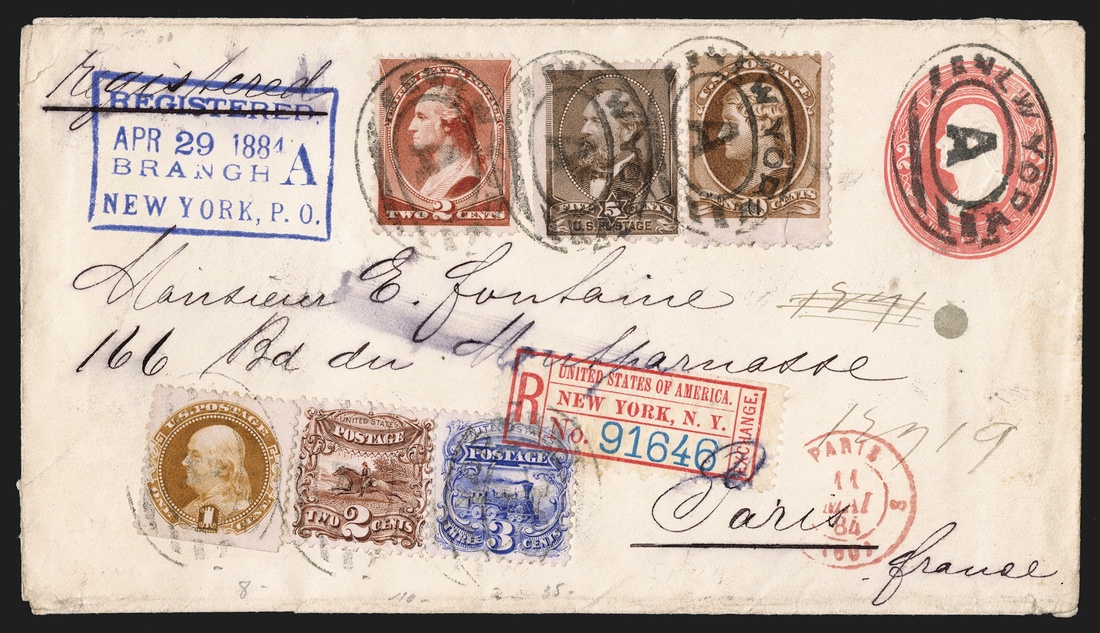 Registered
REGISTERED.
APR 29 1884
BRANGH A
NEW YORK, P. O.
TWO 2 CENTS
5
U.S. POSTAGE
U.S. POSTAGE
CENTS
NEW YORK
A
Monsieur E. Fontaine
166 Bd du Montparnasse
R
UNITED STATES OF AMERICA.
NEW YORK, N. Y.
No. 91646
EXCHANGE.
U.S. POSTAGE
1
CENT
UNITED STATES
POSTAGE
TWO 2 CENTS
UNITED STATES
POSTAGE
THREE 3 CENTS
Paris
france
PARIS
11
MAI
84
8 -
110 -
35 -